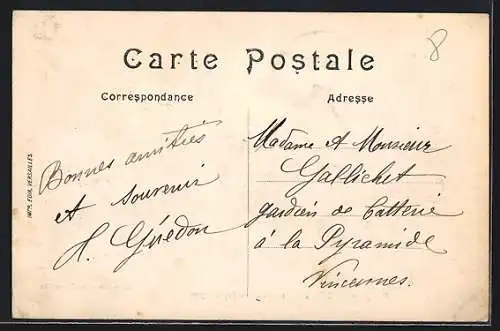 Carte Postale
8
Correspondance
Adresse
Bonnes amitiés
et souvenir
H. Guédon
Madame et Monsieur
Gallichet
gardien de batterie
à la Pyramide
Vincennes.
VERSAILLES